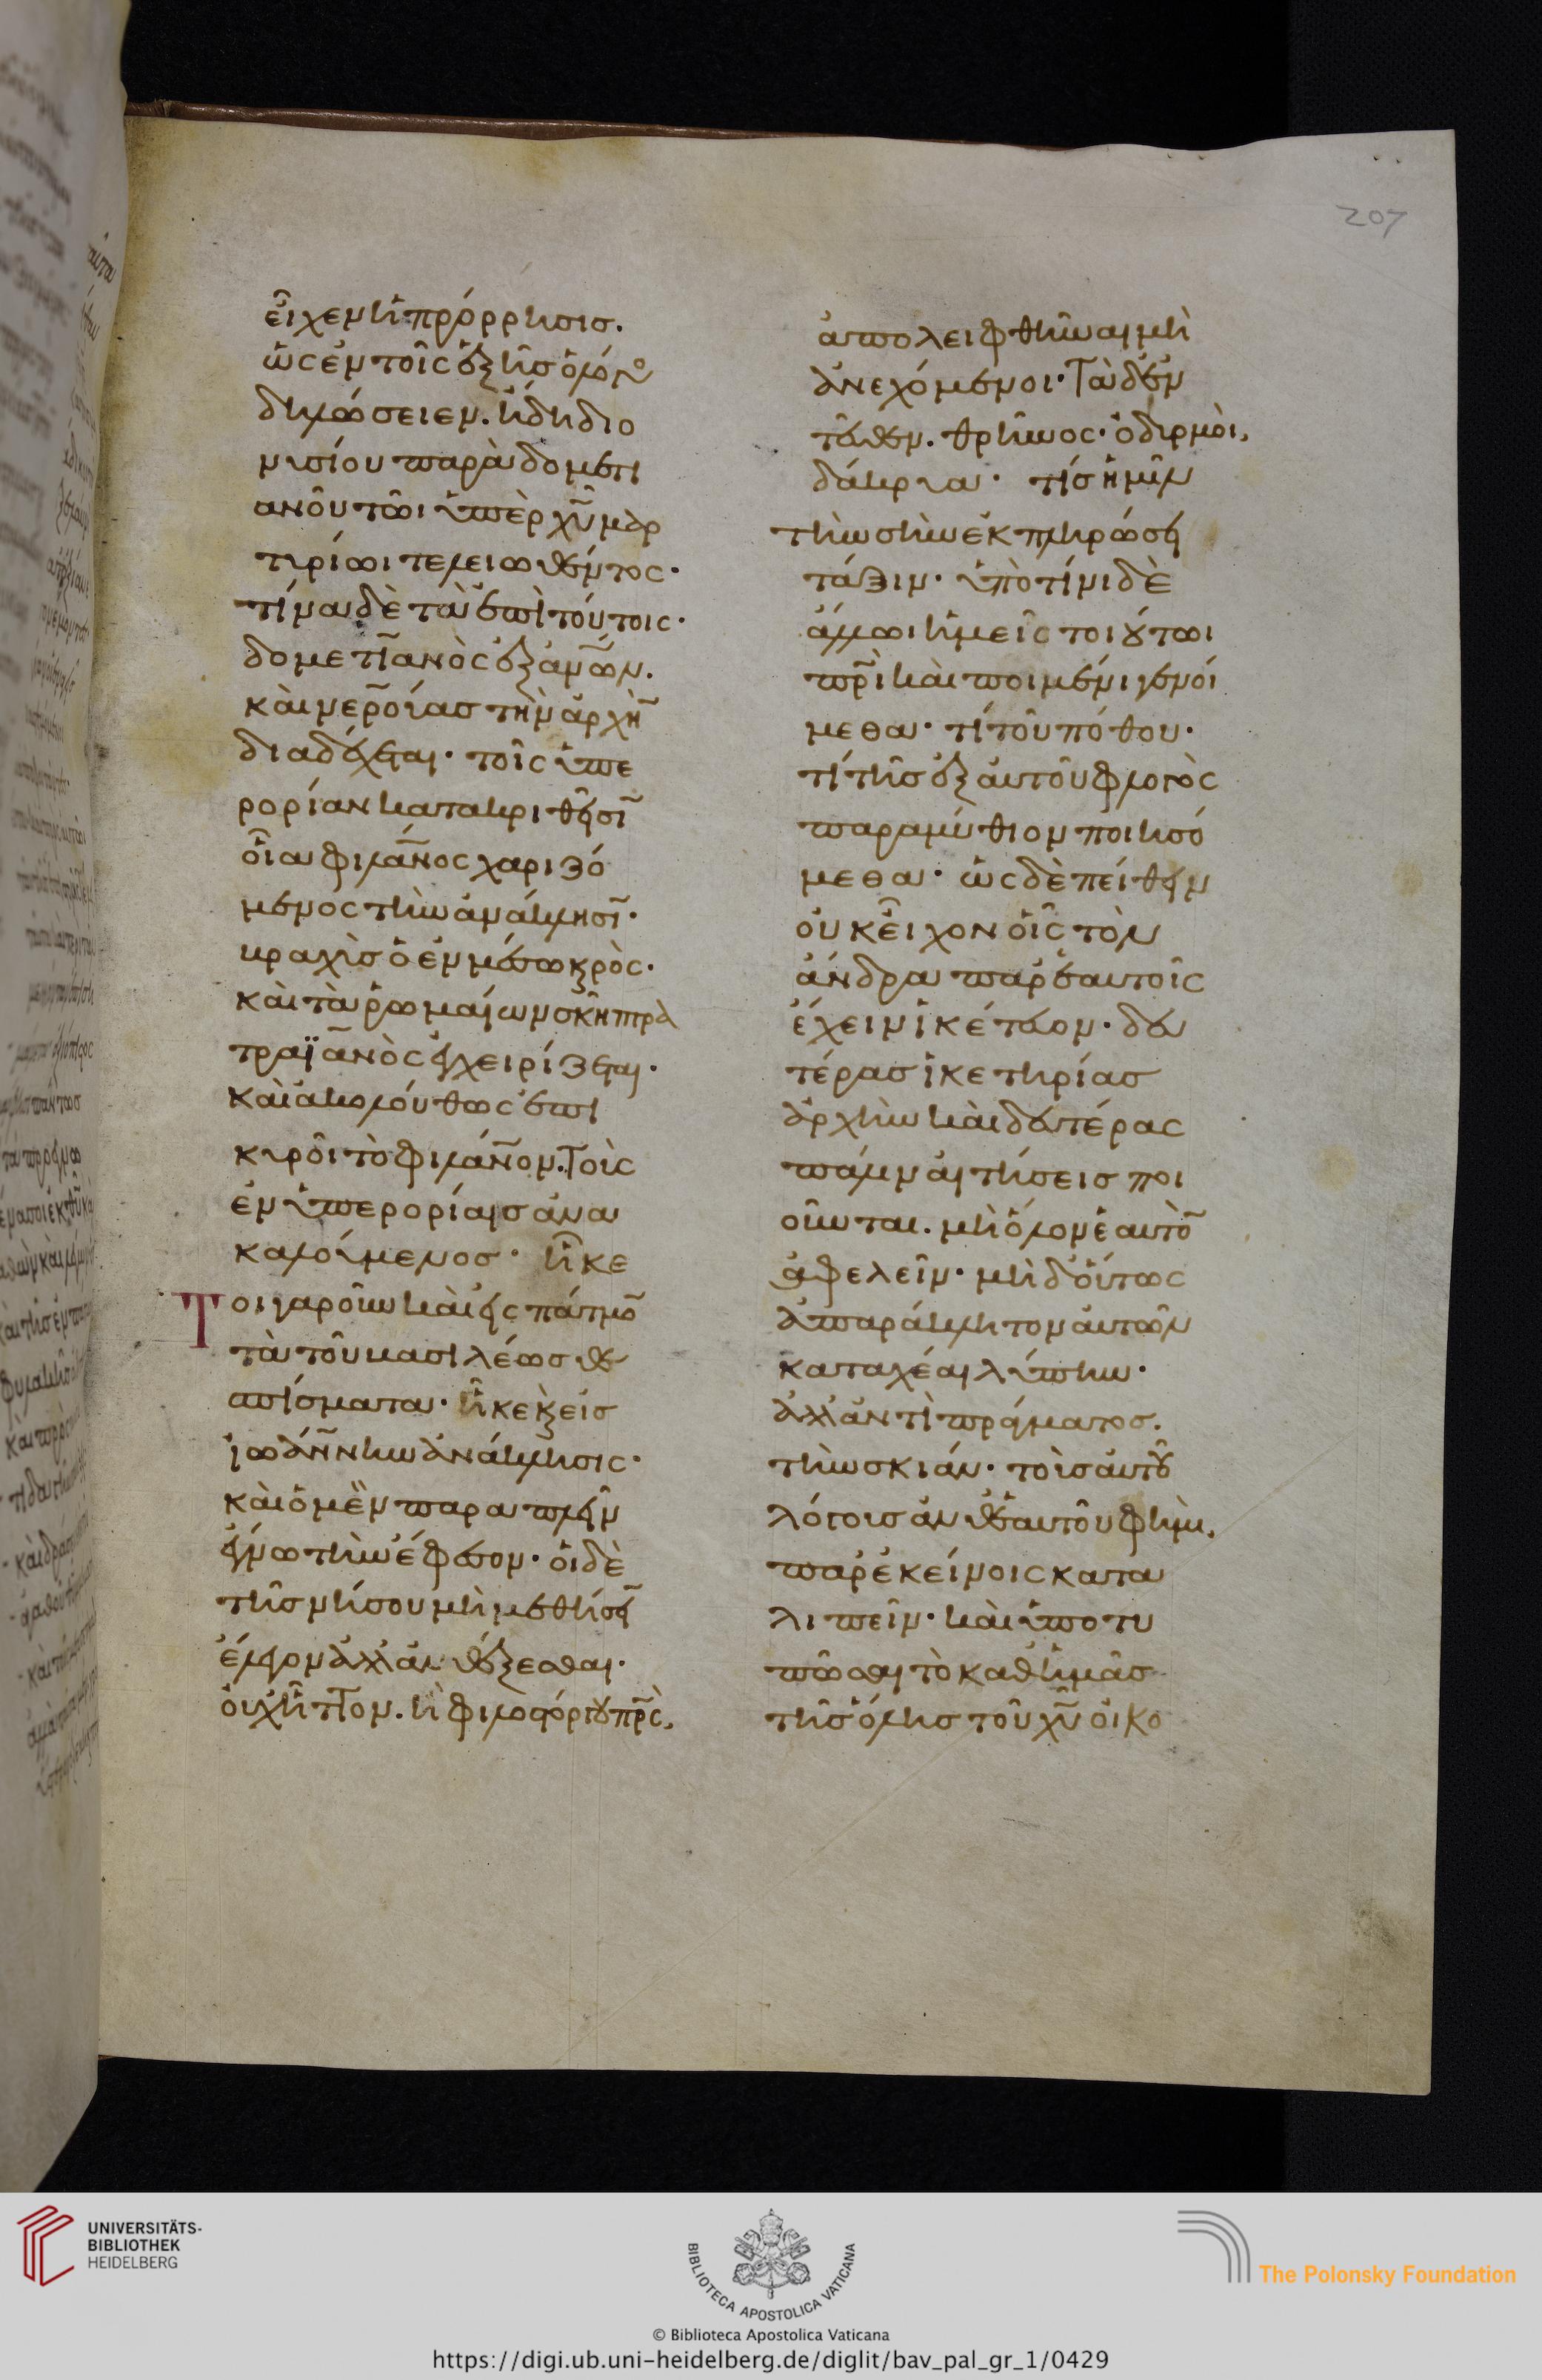 207
εἶχεν ἡ πρόρρησισ.
ὡς ἐν τοῖς ἑξῆσ ὁ λόγο
δηλώσειεν. ἤδη διο
νυσίου παρὰ δομετι
ανοῦ τῶι ὑπὲρ χῦ μαρ
τυρίωι τελειωθέντος·
τίνα δὲ τὰ ἐπὶ τούτοις·
δομετιανὸς ἐξ ἀνῶν.
καὶ νερούας τὴν ἀρχὴ
διαδέχεται· τοῖς ὑπε
ρορίαν κατακριθεῖσι
οἷα φιλανος χαριζό
μενος τὴν ἀνάκλησι·
βραχὺσ ὁ ἐν μέσω κρὸς·
καὶ τὰ ῥωμαίων σκῆπτρα
τραϊανὸς ἐγχειρίζεται·
καὶ ἀκολούθως ἐπι
κυροῖ τὸ φιλάνον. Τοὺς
ἐν ὑπερορίαισ ἀνα
καλούμενοσ· ἧκε
Τοιγαροῦν καὶ εἰς πάτμο
τὰ τοῦ βασιλέωσ θε
σπίσματα· ἧκε κεἰσ
ἰωάννην ἀνάκλησις·
καὶ ὁ μὲν παραπλεῖν
ἔγνω τὴν ἔφεσον· οἱ δὲ
τῆσ νήσου μὴ μεθήσει
ἔλεγον ἀλλ' ἀνθέξεσθαι·
οὐχ ἧττον. ἢ φιλοστόργου πρς,
ἀπολειφθῆναι μὴ
ἀνεχόμενοι· Τὰ δ' ἐν
τεῦθεν. θρῆνος· ὀδυρμοὶ,
δάκρυα· τίσ ἡμῖν
τὴν σὴν ἐκπληρώσει
τάξιν· ὑπὸ τίνι δὲ
ἄλλωι ἡμεῖς τοιούτωι
πρὶ καὶ ποιμένι γενοί
μεθα· τί τοῦ πόθου·
τί τῆσ ἐξ αὐτοῦ φλογὸς
παραμύθιον ποιησό
μεθα· ὡς δὲ πείθειν
οὐκ εἶχον οἷς τὸν
ἄνδρα παρ' ἑαυτοῖς
ἔχειν ἱκέτευον· δευ
τέρασ ἱκετηρίασ
ἀρχὴν καὶ δευτέρας
πάλιν αἰτήσεισ ποι
οῦνται. μὴ ὅλον ἑαυτὸ
ἀφελεῖν· μὴ δ' οὕτως
ἀπαράκλητον αὐτῶν
καταχέαι λύπην·
ἀλλ' ἀντὶ πράγματοσ.
τὴν σκιάν· τοὺσ αὐτοῦ
λόγουσ ἀνθ' ἑαυτοῦ φημὶ,
παρ' ἐκείνοις κατα
λιπεῖν· καὶ ὑποτυ
πῶσαι τὸ καθ' ἡμᾶσ
τῆσ ὅλησ τοῦ χῦ οἰκο
UNIVERSITÄTS-
BIBLIOTHEK
HEIDELBERG
BIBLIOTECA APOSTOLICA VATICANA
The Polonsky Foundation
© Biblioteca Apostolica Vaticana
https://digi.ub.uni-heidelberg.de/diglit/bav_pal_gr_1/0429